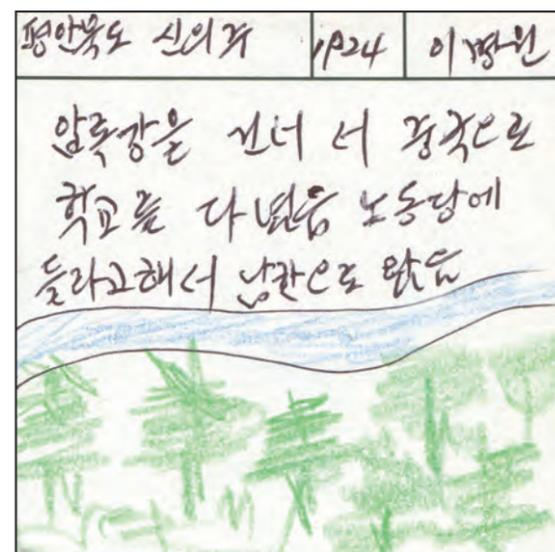 평안북도 신의주 1924 이명원
압록강을 건너 서 중국으로
학교를 다녔음 노동당에
들라고해서 남한으로 왔음